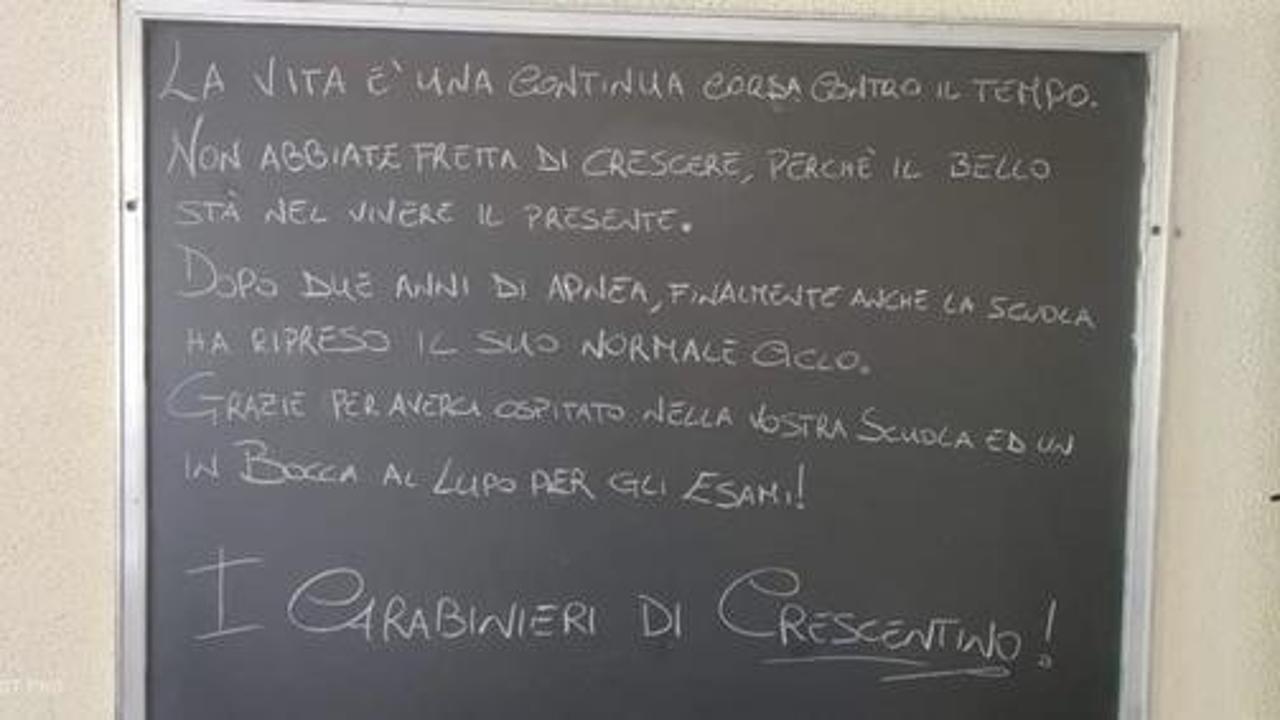 LA VITA E' UNA CONTINUA CORSA CONTRO IL TEMPO.
NON ABBIATE FRETTA DI CRESCERE, PERCHÈ IL BELLO
STÀ NEL VIVERE IL PRESENTE.
DOPO DUE ANNI DI APNEA, FINALMENTE ANCHE LA SCUOLA
HA RIPRESO IL SUO NORMALE CICLO.
GRAZIE PER AVERCI OSPITATO NELLA VOSTRA SCUOLA ED UN
IN BOCCA AL LUPO PER GLI ESAMI!
I CARABINIERI DI CRESCENTINO!